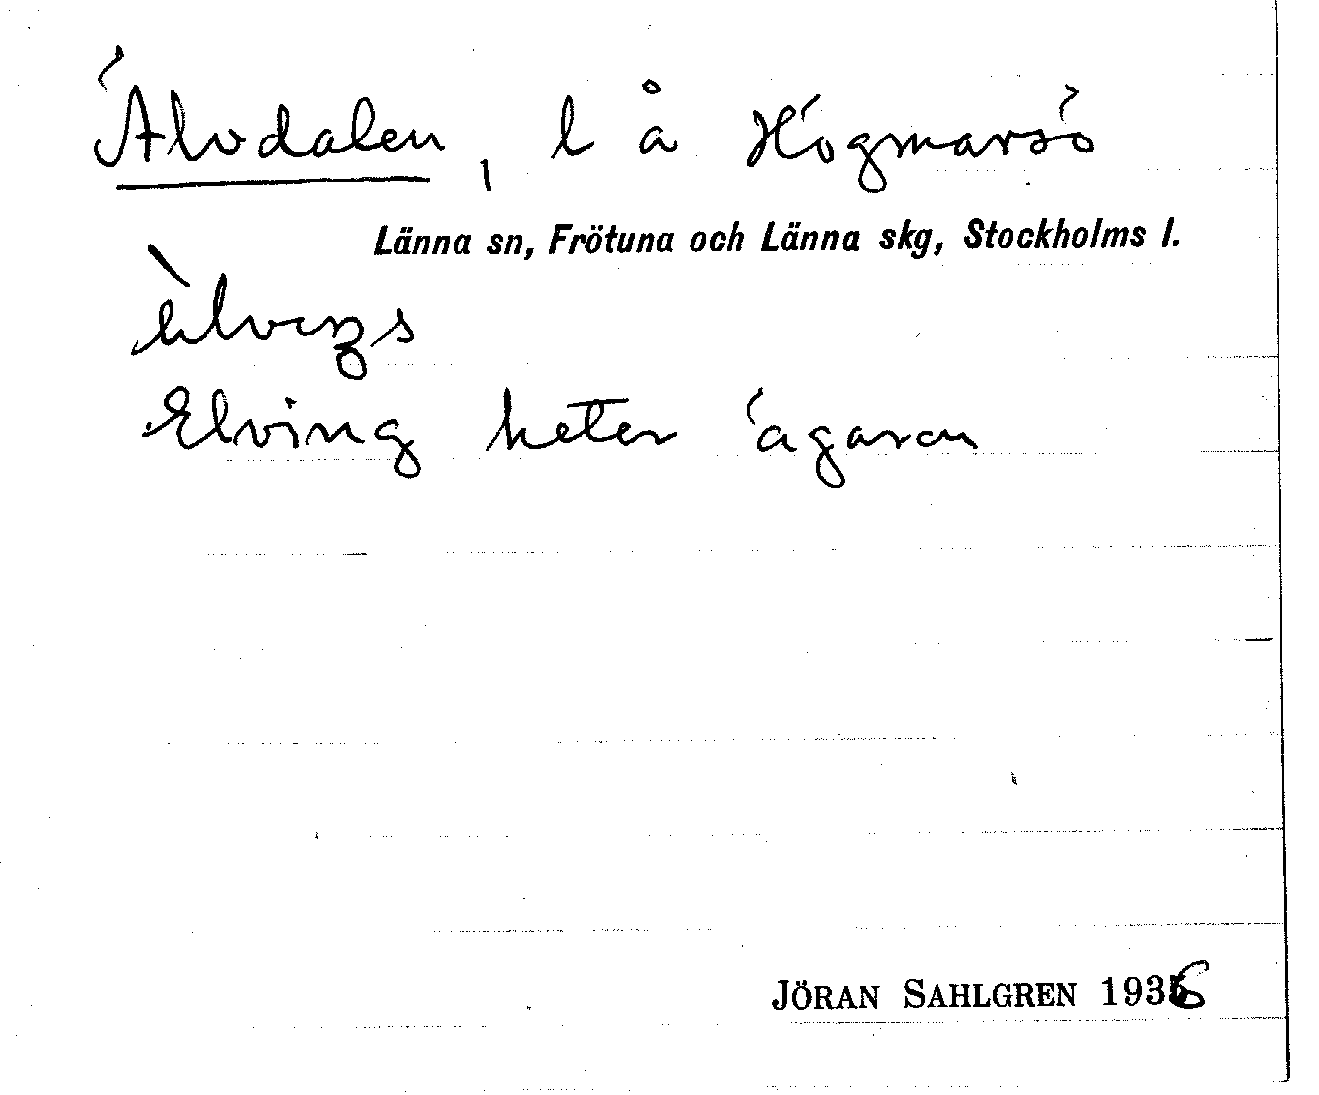 Älvdalen, l å Högmarsö
Länna sn, Frötuna och Länna skg, Stockholms l.
Elving heter ägaren
JÖRAN SAHLGREN 1936